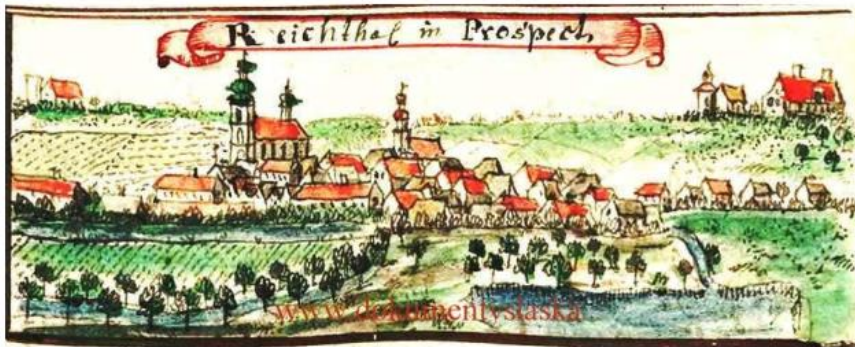 Reichthal in Prospect
www.dokumentyslaska